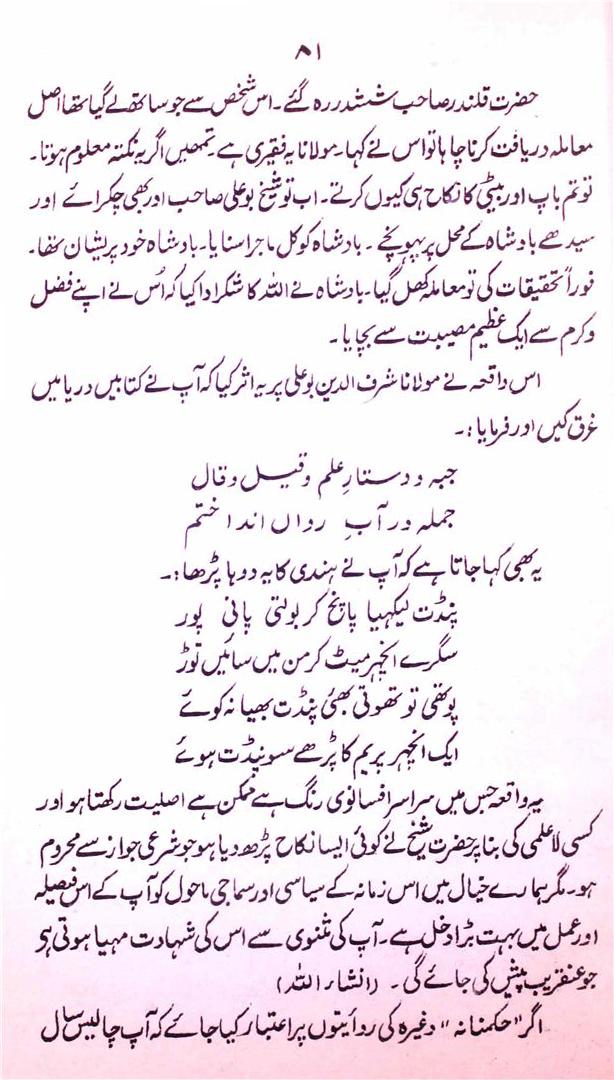 ۸۱
حضرت قلندر صاحب ششدر رہ گئے۔ اس شخص سے جو ساتھ لے گیا تھا اصل
معاملہ دریافت کرنا چاہا تو اس نے کہا۔ مولانا یہ فقیری ہے۔ تمھیں اگر یہ نکتہ معلوم ہوتا۔
تو تم باپ اور بیٹی کا نکاح ہی کیوں کرتے۔ اب تو شیخ بو علی صاحب اور بھی چکرائے اور
سیدھے بادشاہ کے محل پر پہونچے۔ بادشاہ کو کل ماجرا سنایا۔ بادشاہ خود پریشان تھا۔
فوراً تحقیقات کی تو معاملہ کھل گیا۔ بادشاہ نے اللہ کا شکر ادا کیا کہ اُس نے اپنے فضل
و کرم سے ایک عظیم مصیبت سے بچایا۔
اس واقعہ نے مولانا شرف الدین بو علی پر یہ اثر کیا کہ آپ نے کتابیں دریا میں
غرق کیں اور فرمایا:۔
جبہ و دستارِ علم و قیل و قال
جملہ در آبِ رواں انداختم
یہ بھی کہا جاتا ہے کہ آپ نے ہندی کا یہ دوہا پڑھا:۔
پنڈت لیکہیا پانچ کر بولتی پانی پور
سگرے انچہر میٹ کر من میں سائیں توڑ
پوتھی تو تھوتی بھئی پنڈت بھیا نہ کوئے
ایک انچہر پریم کا پڑھے سو پنڈت ہوئے
یہ واقعہ جس میں سراسر افسانوی رنگ ہے ممکن ہے اصلیت رکھتا ہو اور
کسی لا علمی کی بنا پر حضرت شیخ نے کوئی ایسا نکاح پڑھ دیا ہو جو شرعی جواز سے محروم
ہو۔ مگر ہمارے خیال میں اس زمانہ کے سیاسی اور سماجی ماحول کو آپ کے اس فیصلہ
اور عمل میں بہت بڑا دخل ہے۔ آپ کی مثنوی سے اس کی شہادت مہیا ہوتی ہی
جو عنقریب پیش کی جائے گی۔ (انشاء اللہ)
اگر "حکمنامہ" وغیرہ کی روائیتوں پر اعتبار کیا جائے کہ آپ چالیس سال